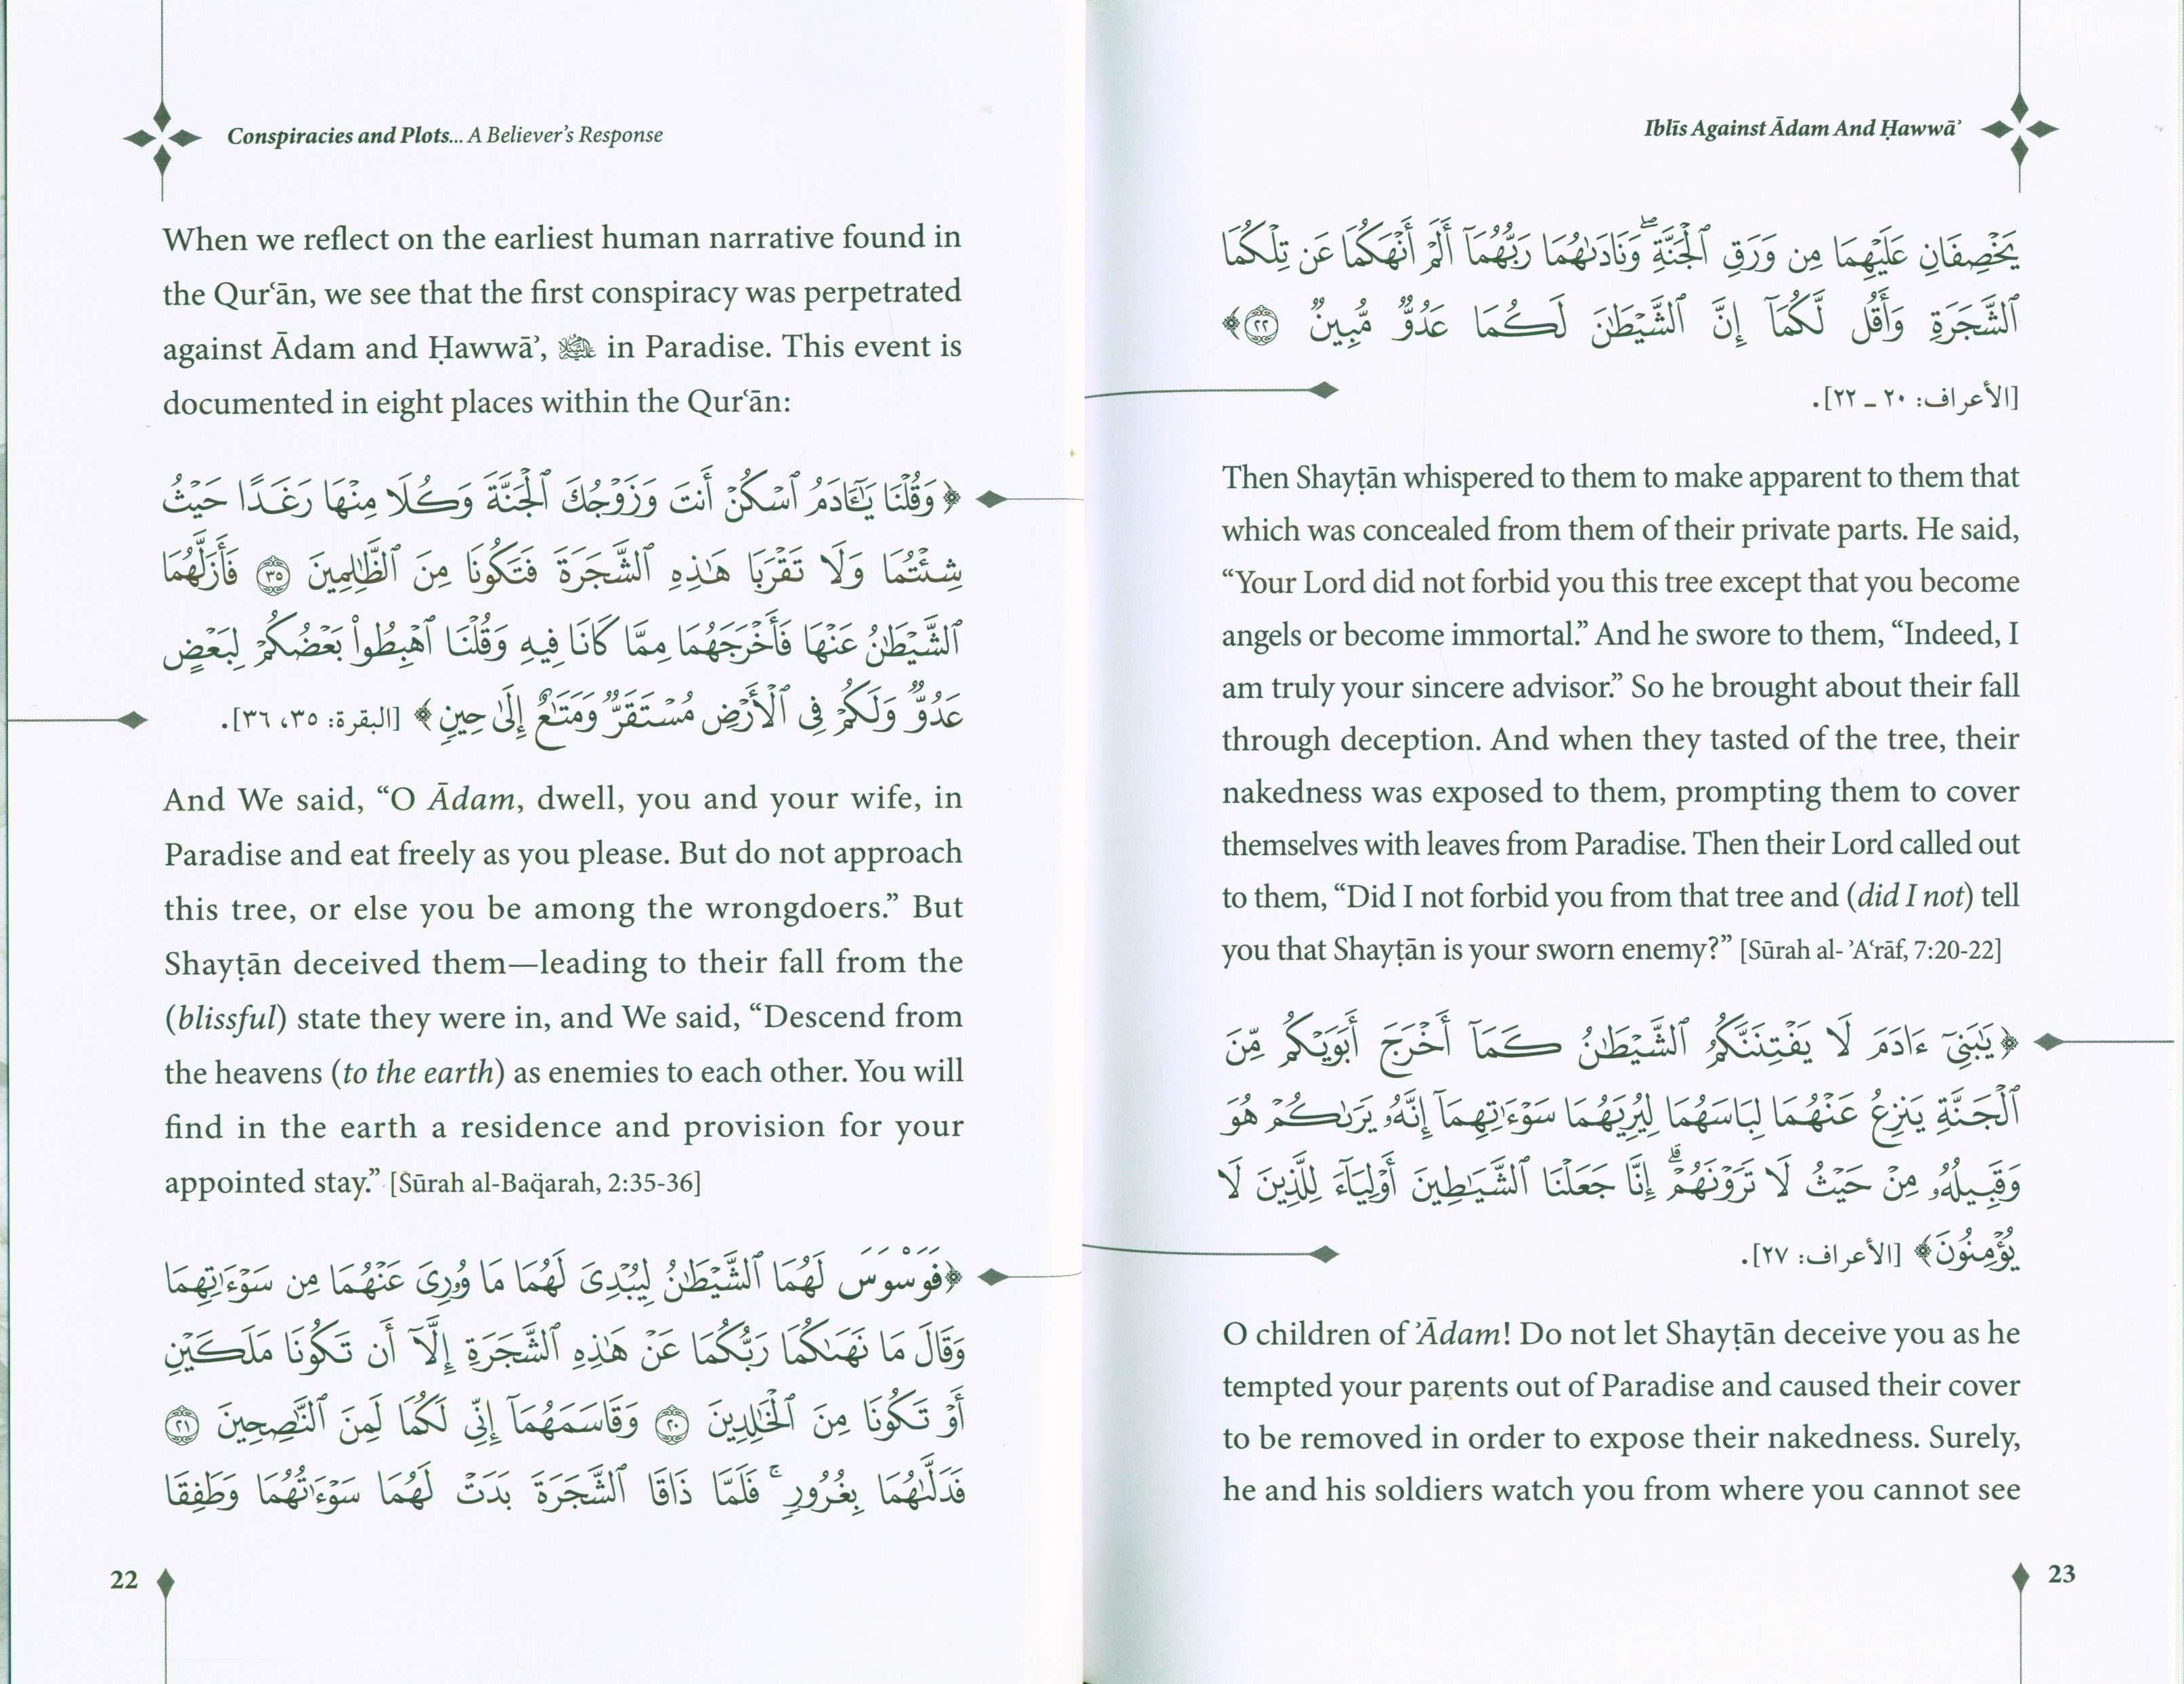 Conspiracies and Plots... A Believer's Response
When we reflect on the earliest human narrative found in
the Qurʿān, we see that the first conspiracy was perpetrated
against Ādam and Ḥawwāʾ, in Paradise. This event is
documented in eight places within the Qurʿān:
﴿وَقُلْنَا يَـٰٓـَٔادَمُ ٱسْكُنْ أَنتَ وَزَوْجُكَ ٱلْجَنَّةَ وَكُلَا مِنْهَا رَغَدًا حَيْثُ
شِئْتُمَا وَلَا تَقْرَبَا هَـٰذِهِ ٱلشَّجَرَةَ فَتَكُونَا مِنَ ٱلظَّـٰلِمِينَ ٣٥ فَأَزَلَّهُمَا
ٱلشَّيْطَـٰنُ عَنْهَا فَأَخْرَجَهُمَا مِمَّا كَانَا فِيهِ وَقُلْنَا ٱهْبِطُوا۟ بَعْضُكُمْ لِبَعْضٍ
عَدُوٌّ وَلَكُمْ فِى ٱلْأَرْضِ مُسْتَقَرٌّ وَمَتَـٰعٌ إِلَىٰ حِينٍ﴾ [البقرة: ٣٥، ٣٦].
And We said, “O Ādam, dwell, you and your wife, in
Paradise and eat freely as you please. But do not approach
this tree, or else you be among the wrongdoers.” But
Shayṭān deceived them—leading to their fall from the
(blissful) state they were in, and We said, “Descend from
the heavens (to the earth) as enemies to each other. You will
find in the earth a residence and provision for your
appointed stay.” [Sūrah al-Baq̈arah, 2:35-36]
﴿فَوَسْوَسَ لَهُمَا ٱلشَّيْطَـٰنُ لِيُبْدِىَ لَهُمَا مَا وُۥرِىَ عَنْهُمَا مِن سَوْءَٰتِهِمَا
وَقَالَ مَا نَهَىٰكُمَا رَبُّكُمَا عَنْ هَـٰذِهِ ٱلشَّجَرَةِ إِلَّآ أَن تَكُونَا مَلَكَيْنِ
أَوْ تَكُونَا مِنَ ٱلْخَـٰلِدِينَ ٢٠ وَقَاسَمَهُمَآ إِنِّى لَكُمَا لَمِنَ ٱلنَّـٰصِحِينَ ٢١
فَدَلَّىٰهُمَا بِغُرُورٍ ۚ فَلَمَّا ذَاقَا ٱلشَّجَرَةَ بَدَتْ لَهُمَا سَوْءَٰتُهُمَا وَطَفِقَا
22
Iblīs Against Ādam And Ḥawwāʾ
يَخْصِفَانِ عَلَيْهِمَا مِن وَرَقِ ٱلْجَنَّةِ ۖ وَنَادَىٰهُمَا رَبُّهُمَآ أَلَمْ أَنْهَكُمَا عَن تِلْكُمَا
ٱلشَّجَرَةِ وَأَقُل لَّكُمَآ إِنَّ ٱلشَّيْطَـٰنَ لَكُمَا عَدُوٌّ مُّبِينٌ ٢٢﴾
[الأعراف: ٢٠ ـ ٢٢].
Then Shayṭān whispered to them to make apparent to them that
which was concealed from them of their private parts. He said,
“Your Lord did not forbid you this tree except that you become
angels or become immortal.” And he swore to them, “Indeed, I
am truly your sincere advisor.” So he brought about their fall
through deception. And when they tasted of the tree, their
nakedness was exposed to them, prompting them to cover
themselves with leaves from Paradise. Then their Lord called out
to them, “Did I not forbid you from that tree and (did I not) tell
you that Shayṭān is your sworn enemy?” [Sūrah al- ʾAʿrāf, 7:20-22]
﴿يَـٰبَنِىٓ ءَادَمَ لَا يَفْتِنَنَّكُمُ ٱلشَّيْطَـٰنُ كَمَآ أَخْرَجَ أَبَوَيْكُم مِّنَ
ٱلْجَنَّةِ يَنزِعُ عَنْهُمَا لِبَاسَهُمَا لِيُرِيَهُمَا سَوْءَٰتِهِمَآ إِنَّهُۥ يَرَىٰكُمْ هُوَ
وَقَبِيلُهُۥ مِنْ حَيْثُ لَا تَرَوْنَهُمْ ۗ إِنَّا جَعَلْنَا ٱلشَّيَـٰطِينَ أَوْلِيَآءَ لِلَّذِينَ لَا
يُؤْمِنُونَ﴾ [الأعراف: ٢٧].
O children of ʾĀdam! Do not let Shayṭān deceive you as he
tempted your parents out of Paradise and caused their cover
to be removed in order to expose their nakedness. Surely,
he and his soldiers watch you from where you cannot see
23